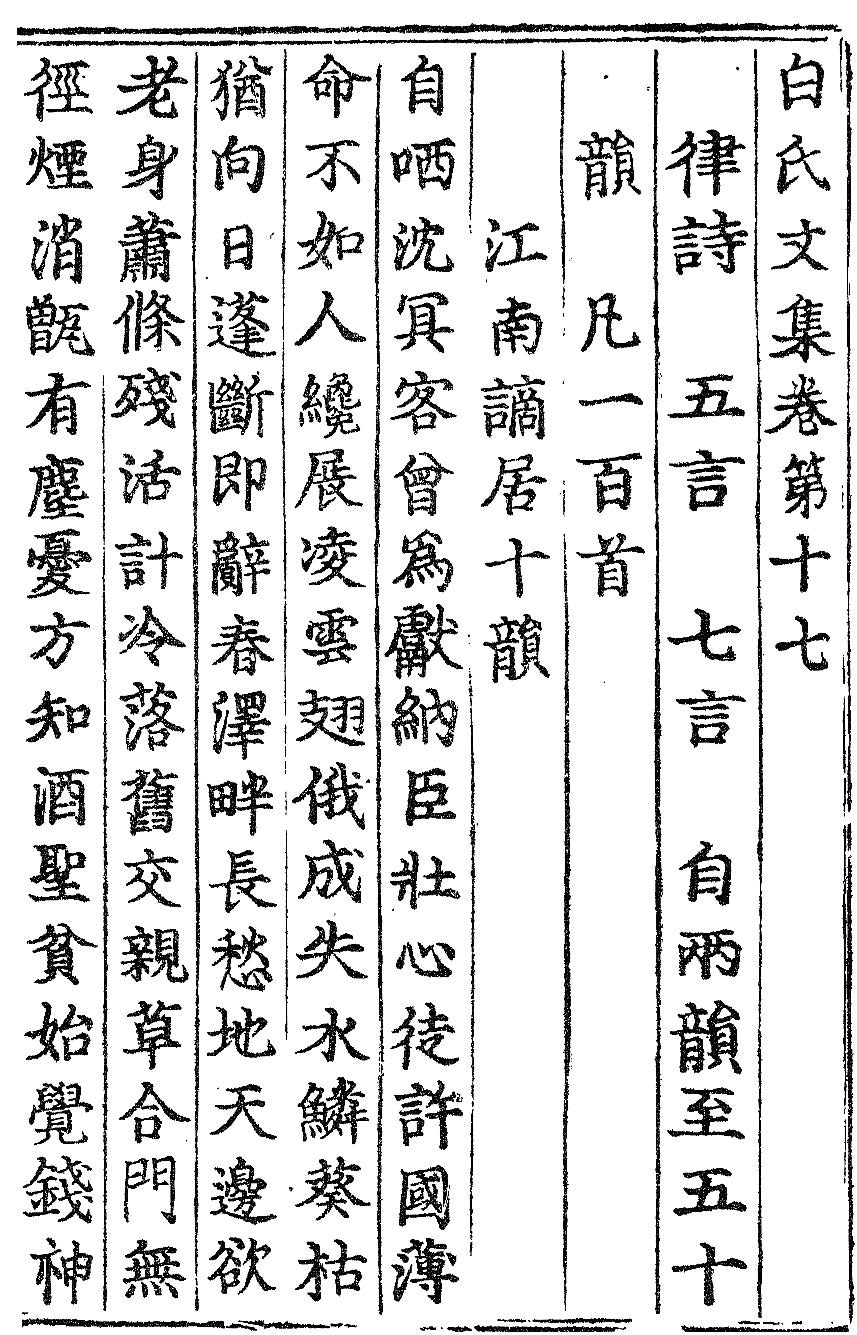 白氏文集卷第十七
律詩 五言 七言 自兩韻至五十
韻 凡一百首
江南謫居十韻
自哂沈冥客曾爲獻納臣壯心徒許國薄
命不如人纔展凌雲翅俄成失水鱗葵枯
猶向日蓬斷即辭春澤畔長愁地天邊欲
老身蕭條殘活計冷落舊交親草合門無
徑煙消甑有塵憂方知酒聖貧始覺錢神